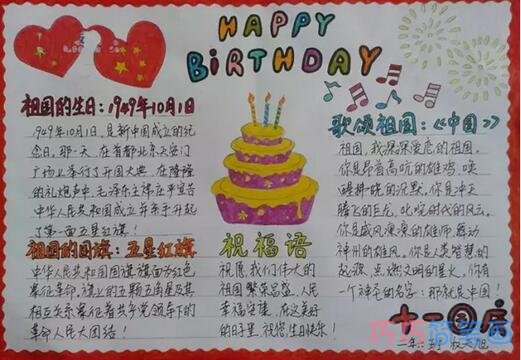 HAPPY
BiRTHDAY
祖国的生日：1949年10月1日
1949年10月1日,是新中国成立的纪
念日。那一天,在首都北京天安门
广场上举行了开国大典,在隆隆
的礼炮声中,毛泽东主席庄严宣告
中华人民共和国成立并亲手升起
了第一面五星红旗!
祖国的国旗：五星红旗
中华人民共和国国旗旗面为红色
象征革命。旗上的五颗五角星及其
相互关系象征着共产党领导下的
革命人民大团结!
祝福语
祝愿我们伟大的
祖国繁荣昌盛,人民
幸福安康,在这美好
的日子里,祝您生日快乐!
歌颂祖国：《中国》
祖国,我深深爱恋的祖国。
你是昂首高吭的雄鸡,唤
醒拂晓的沉默,你是冲天
腾飞的巨龙,叱咤时代的风云,
你是威风凛凛的雄狮,舞动
神州的雄风。你是人类智慧的
起源,点燃文明的星火。你有
一个神圣的名字：那就是中国!
十一国庆
二年六班